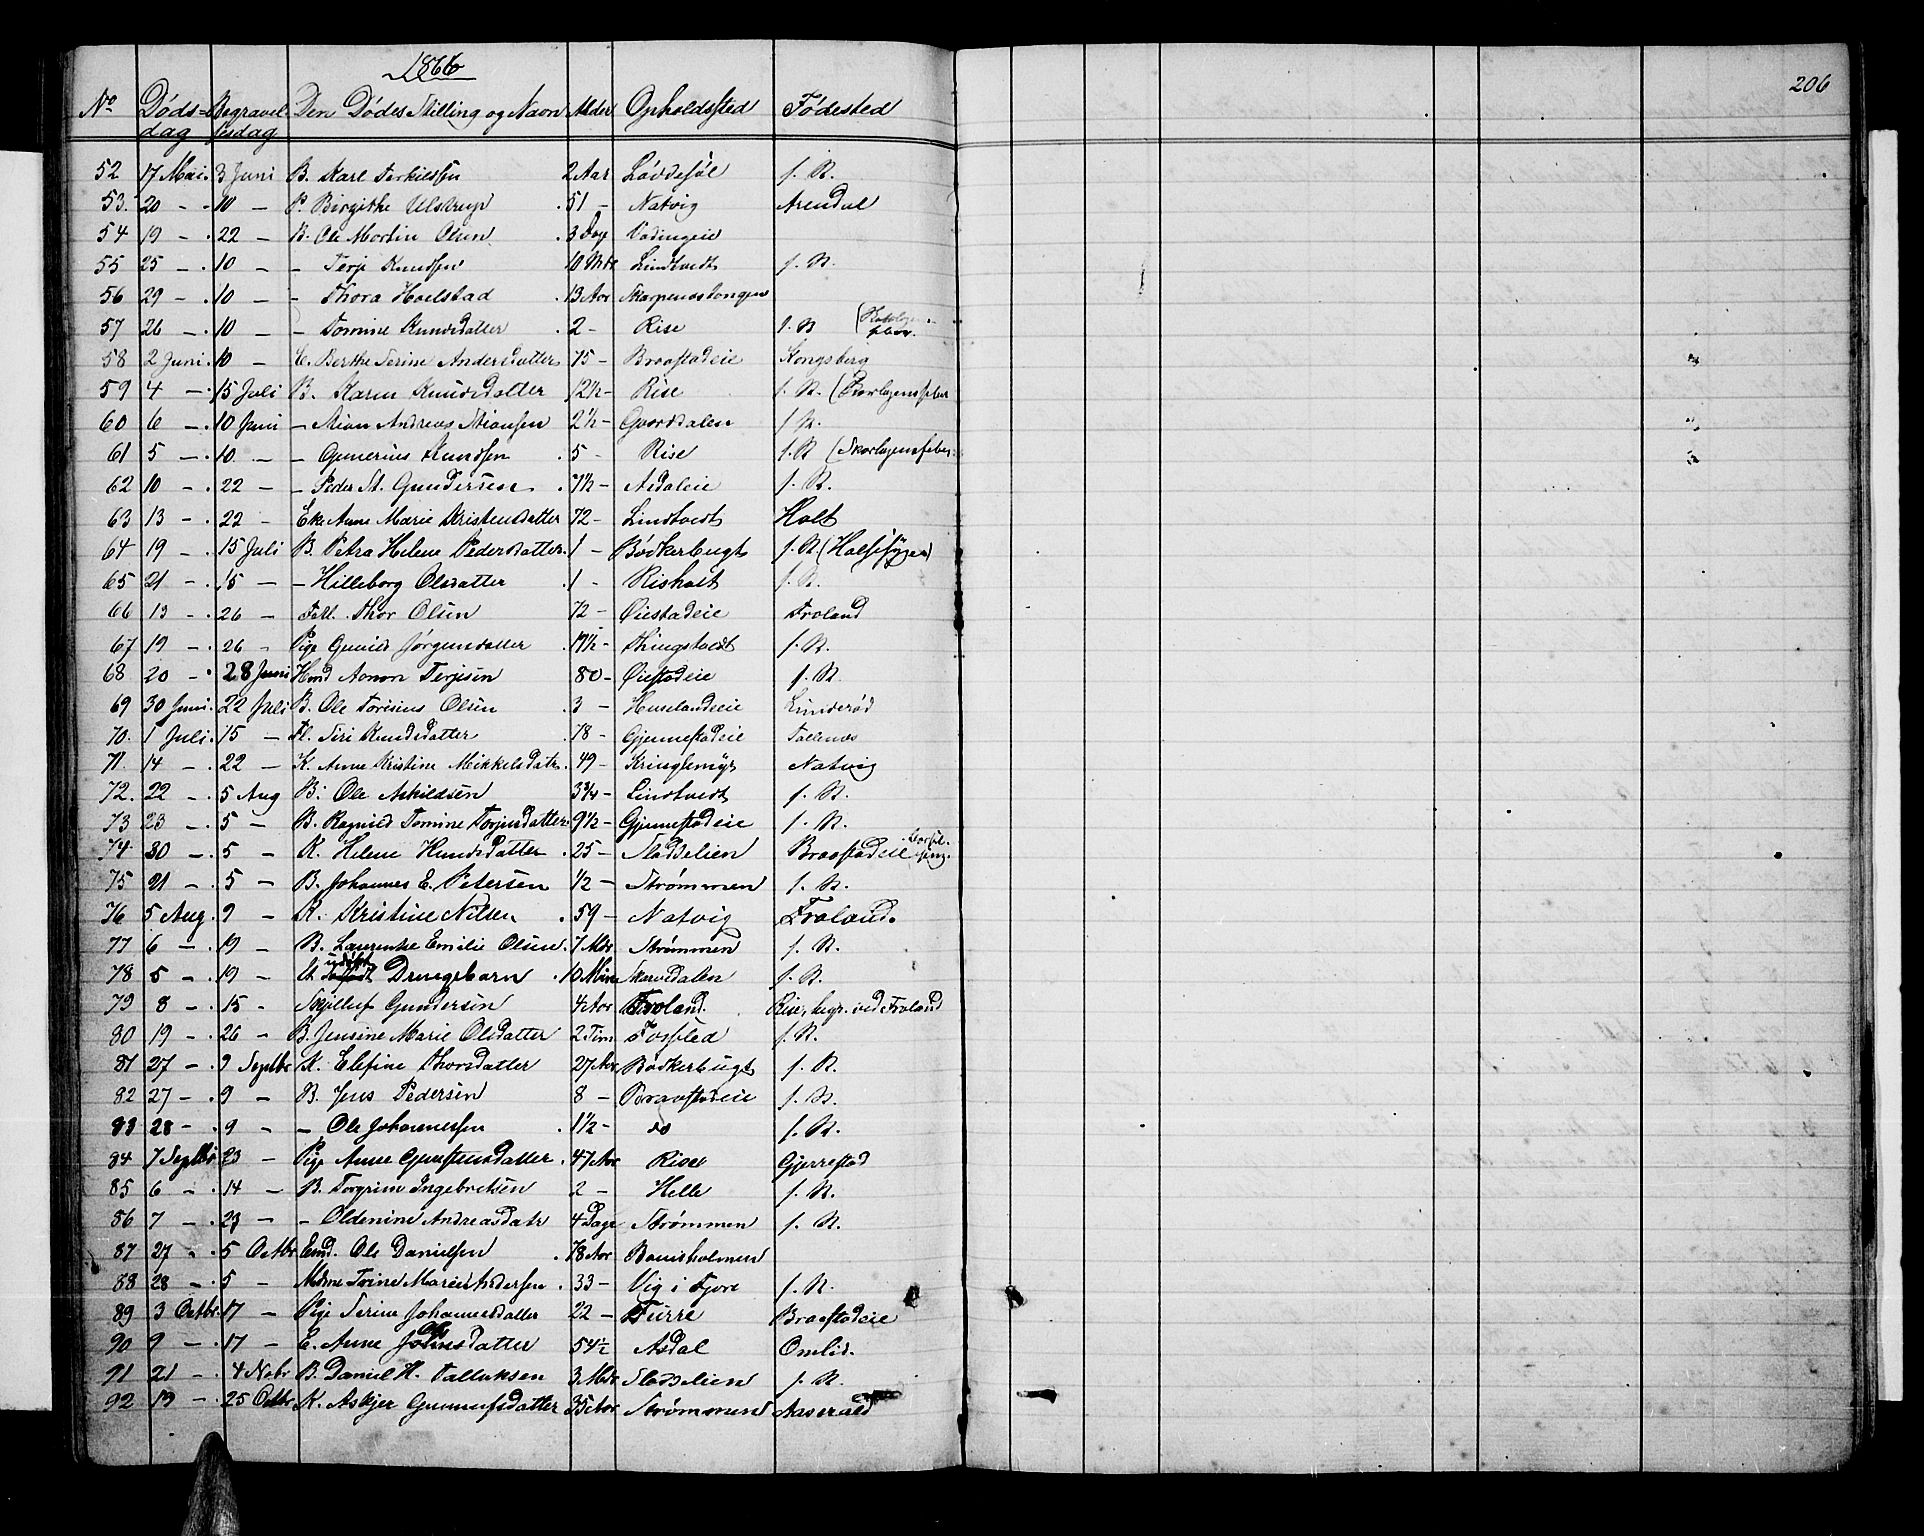 1866
206
No Døds- Begravel- Den Dødes Stilling og Navn Alder Opholdssted Fødested
dag sesdag
52 17 Mai. 3 Juni B. Karl Terkilsen 2 Aar Løvdesøl f. R.
53. 20 - 10 - P. Birgithe Ulstrup 51 - Natvig Arendal
54 19 - 22 - B. Ole Martin Olsen 3 Dag
55 25 - 10 - - Terje Knudsen 10 Mdr Lindtvedt f. R.
56 29 - 10 - - Thora Hoelstad 13 Aar
57 26 - 10 - - Tomine Knudsdatter 2 - Rise f. R
58 2 Juni 10 - E. Berthe Serine Andersdatter 75 - Braastadeie Kongsberg
59 4 - 15 Juli B. Karen Knudsdatter 12½ - Rise f. R. (Skarlagensfeber
60 6 - 10 Juni - Andreas 2½ - f R.
61 5 - 10 - - Gunerius Knudsen 5 - Rise f. R (Skarlagensfeber
62 10 - 22 - - Peder St. Gundersen 7½ - Asdaleie f. R.
63 13 - 22 - Eke Anne Marie Kristensdatter 72 - Lindtvedt Holt
64 19 - 15 Juli B. Petra Helene Pedersdatter 1 - Bødkerbugt f. R (Halssyge)
65 21 - 15 - - Hilleborg Olsdatter 1 - Risholt f. R.
66 13 - 26 - Thor Olsen 72 - Øiestadeie Froland
67 19 - 26 - Pige Gunild Jørgensdatter 17½ - Thingstvedt f. R.
68 20 - 28 Juni Hmd Aanon Terjesen 80 - Øiestadeie f. R.
69 30 Juni. 22 Juli B. Ole Torsius Olsen 3 - Huselandeie Linderød
70. 1 Juli. 15 - Fl. Siri Knudsdatter 78 - Gjennestadeie
71. 14 - 22 - K. Anne Kristine Mikkelsdatr. 49 - Kringlemyr Natvig
72. 22 - 5 Aug B. Ole Askildsen 3¾ - Lindtvedt f. R.
73 23 - 5 - B. Ragnild Tomine Terjesdatter 9½ - Gjennestadeie f. R.
74 30 - 5 - K. Helene Knudsdatter 25 - Sladdelien Braastadeie
75 21 - 5 - B. Johannes E. Petersen ½ - Strømmen f. R.
76 5 Aug. 9 - K. Kristine Nilsen 59 - Natvig Froland.
77 6 - 19 - B. Laurentze Emilie Olsen 7 Mdr Strømmen f. R.
78 5 - 19 - Et udøbt Drengebarn 10 Min Skarvedalen f. R.
79 8 - 15 - Tjøllef Gundersen 4 Aar Froland. Rise, begr. ved Froland
80 19 - 26 - B. Jensine Marie Olsdatter 2 Tim Fossted f. R.
81 27 - 9 Septbr K. Elefine Thorsdatter 27 Aar Bødkerbugt f. R.
82 27 - 9 - B. Jens Pedersen 8 - Braastadeie f. R.
83 28 - 9 - - Ole Johannessen 1½ - do f. R.
84 7 Septbr 23 - Pige Anne Gunstensdatter 47 Aar Rise Gjerrestad
85 6 - 14 - B. Torgrim Ingebretsen 2 - Helle f. R.
86 7 - 23 - - Oldenine Andreasdatr 4 Dage Strømmen f. R.
87 27 - 5 Octbr Emd. Ole Danielsen 78 Aar Bouisholmen
88 28 - 5 - Mdme Trine Marie Andersen 33 - Vig i Fjære f. R.
89 3 Octbr. 17 - Pige Serine Johannesdatter 22 - Furre Braastadeie
90 9 - 17 - E. Anne 54½ Asdal Omlid.
91 21 - 4 Nobr B. Daniel H. Tallaksen 3 Mdr Sladdelien f. R.
92 19 - 25 Octbr K. Askjer Gunnufsdatter 35 Aar Strømmen Aaserald